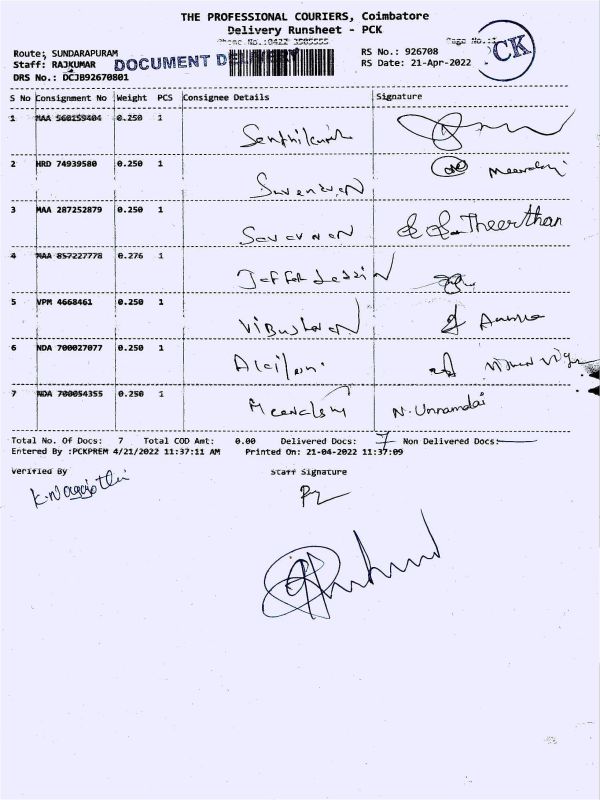 THE PROFESSIONAL COURIERS, Coimbatore
Delivery Runsheet - PCK
Phone No.:0422 3585555 Page No.:1
Route; SUNDARAPURAM RS No.: 926708
Staff: RAJKUMAR DOCUMENT DELIVERY RS Date: 21-Apr-2022
DRS No.: DCJB92670801 CK
S No Consignment No Weight PCS Consignee Details Signature
1 MAA 560159404 0.250 1 Senthilkumar
2 HRD 74939580 0.250 1 Surendran
3 MAA 287252879 0.250 1 Saravanan Theerthan
4 MAA 857227778 0.276 1
5 VPM 4668461 0.250 1
6 NDA 700027077 0.250 1
7 NDA 700054355 0.250 1 N. Unnamdai
Total No. Of Docs: 7 Total COD Amt: 0.00 Delivered Docs: 7 Non Delivered Docs:
Entered By :PCKPREM 4/21/2022 11:37:11 AM Printed On: 21-04-2022 11:37:09
Verified By Staff Signature